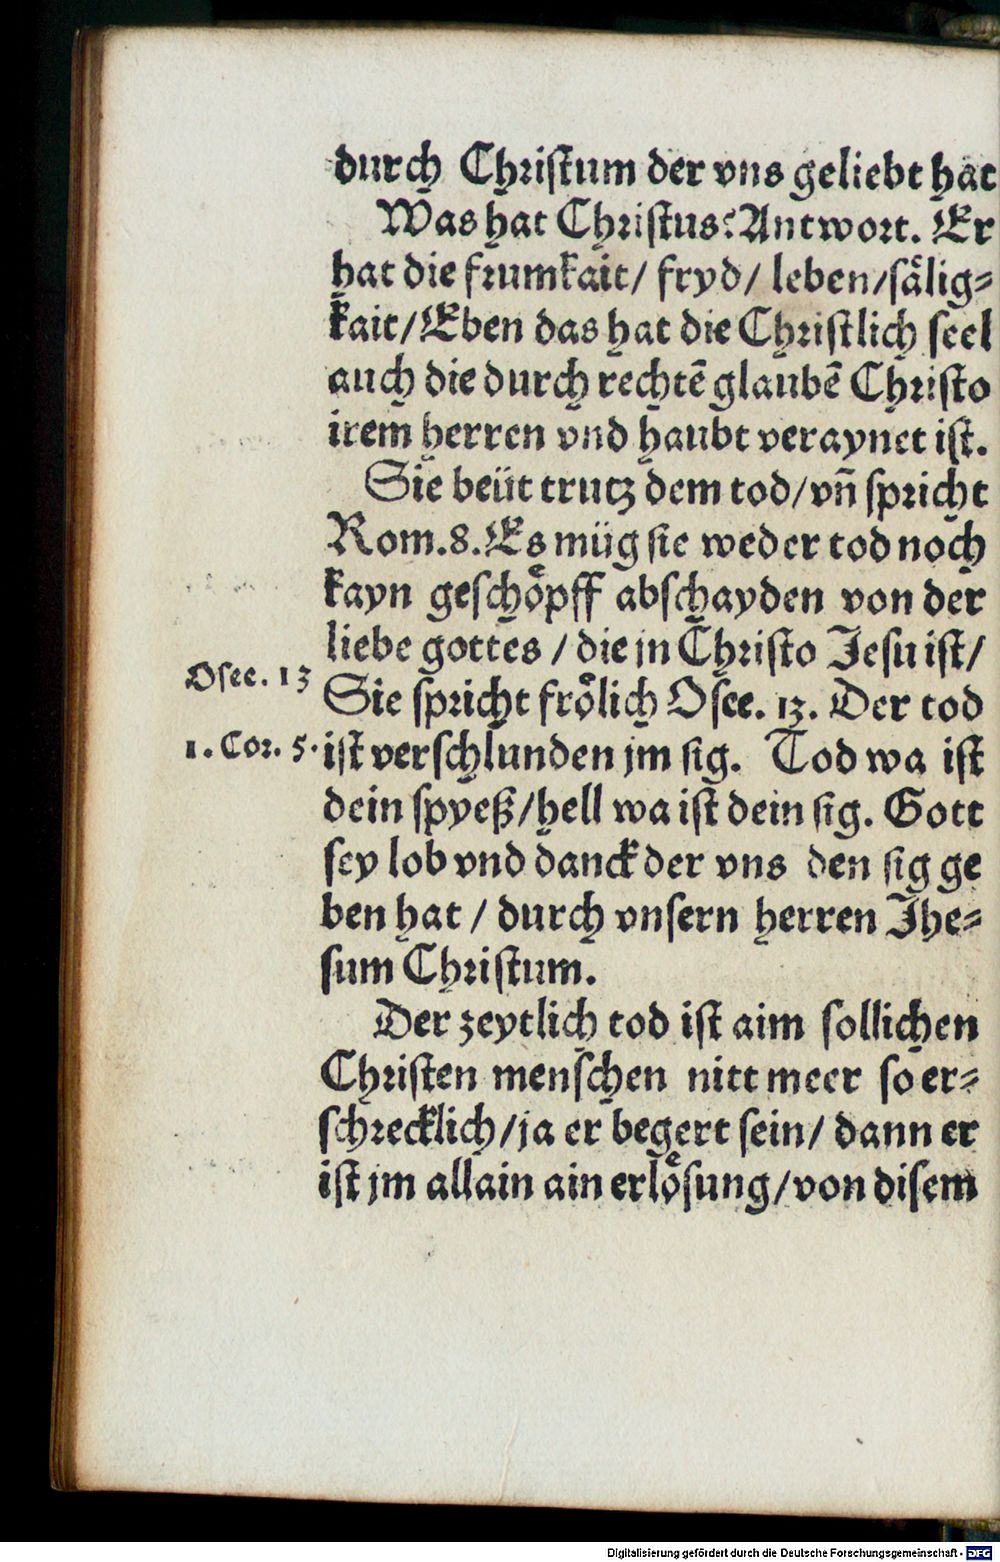 durch Christum der vns geliebt hat
Was hat Christus? Antwort. Er
hat die frumkait/ fryd/ leben/ sålig⸗
kait/ Eben das hat die Christlich seel
auch die durch rechtē glaubē Christo
irem herren vnd haubt veraynet ist.
Sie beüt trutz dem tod/ vñ spricht
Rom. 8. Es müg sie weder tod noch
kayn geschöpff abschayden von der
liebe gottes / die jn Christo Jesu ist/
Osee. 13
Sie spricht frölich Osee. 13. Der tod
1. Cor. 5.
ist verschlunden jm sig. Tod wa ist
dein spyeß/ hell wa ist dein sig. Gott
sey lob vnd danck der vns den sig ge
ben hat / durch vnsern herren Jhe⸗
sum Christum.
Der zeytlich tod ist aim sollichen
Christen menschen nitt meer so er⸗
schrecklich/ ja er begert sein/ dann er
ist jm allain ain erlösung/ von disem
Digitalisierung gefördert durch die Deutsche Forschungsgemeinschaft - DFG